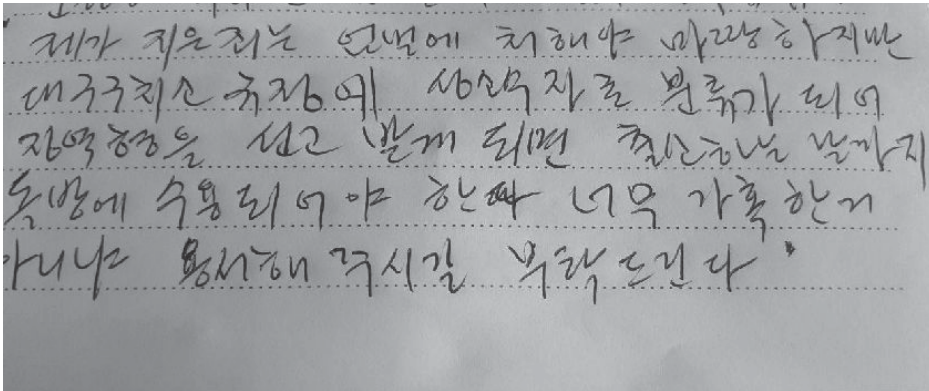 제가 지은죄는 엄벌에 처해야 마땅하지만
대구구치소 규정에 상습목자로 분류가 되어
징역형을 선고 받게 되면 출산하는 날까지
독방에 수용되어야 한다 너무 가혹한거
아니냐 용서해 주시길 부탁드린다.